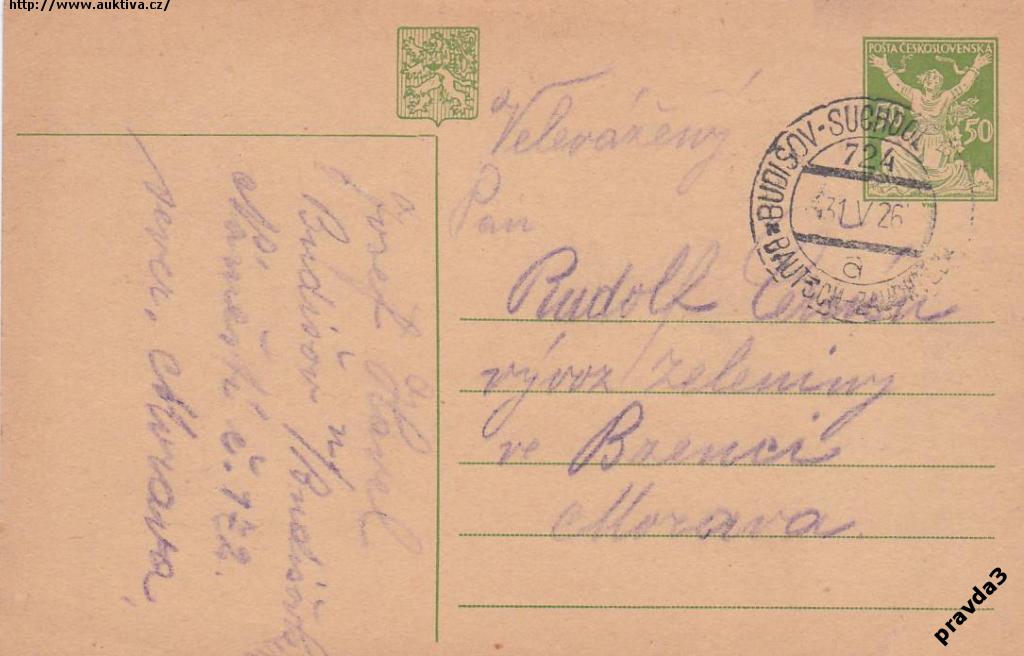 http://www.auktiva.cz/
POŠTA ČESKOSLOVENSKA
50
BUDIŠOV-SUCHDOL
724
31 V 26
a
BAUTSCH-ZAUCHTEL
Velevážený
Pán
Rudolf
vývoz zeleniny
ve Bzenci
Morava.
Josef Havel
Budišov n/Budišovk
Náměstí č. 182.
Morava
pravda3